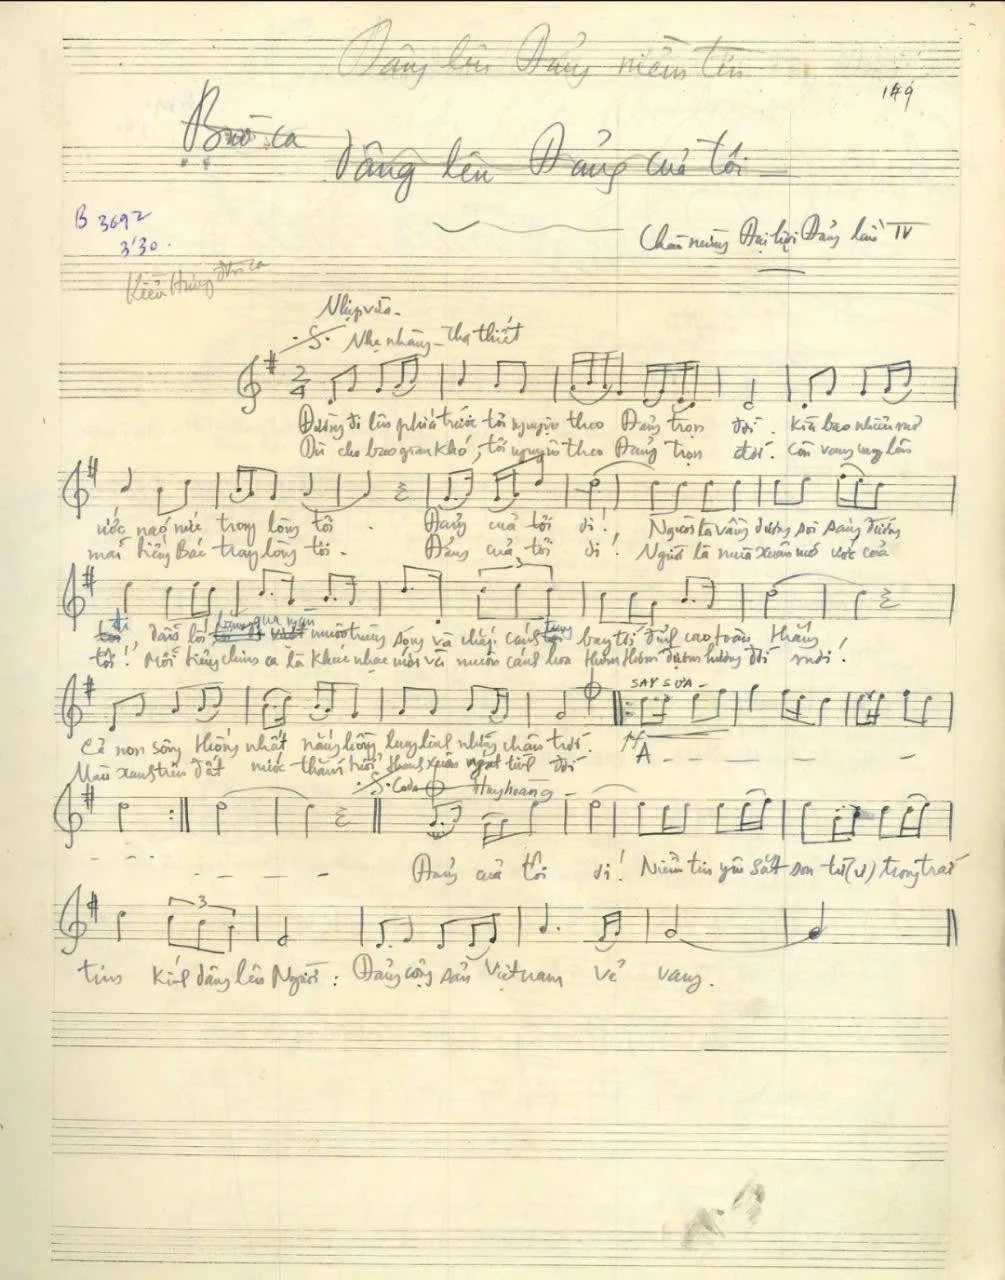 Dâng lên Đảng niềm tin
149
Bài ca dâng lên Đảng của tôi
B 3692
3'30
Chào mừng Đại hội Đảng lần IV
Kiều Hưng đơn ca
Nhịp vừa
Nhẹ nhàng - Tha thiết
2/4
Đường đi lên phía trước tôi nguyện theo Đảng trọn đời. Kìa bao nhiêu mơ
Dù cho bao gian khó, tôi nguyện theo Đảng trọn đời. Còn vang vọng lên
ước nao nức trong lòng tôi. Đảng của tôi ơi! Người là vầng dương soi sáng đường
mãi tiếng Bác trong lòng tôi. Đảng của tôi ơi! Người là mùa xuân mơ ước của
3
đi dẫn lối băng qua muôn trùng sóng và chắp cánh tung bay tới đỉnh cao toàn thắng
tôi! Mỗi tiếng chim ca là khúc nhạc mới và muôn cánh hoa thơm thơm đượm hương đời mới!
SAY SƯA -
Cả non sông thống nhất nắng hồng lung linh những chân trời.
A - - - - -
Màu xanh trên đất nước thắm tươi thanh xuân
Coda Huy hoàng -
Đảng của tôi ơi! Niềm tin yêu sắt son từ (ư) trong trái
3
tim kính dâng lên Người: Đảng cộng sản Việt nam vẻ vang.